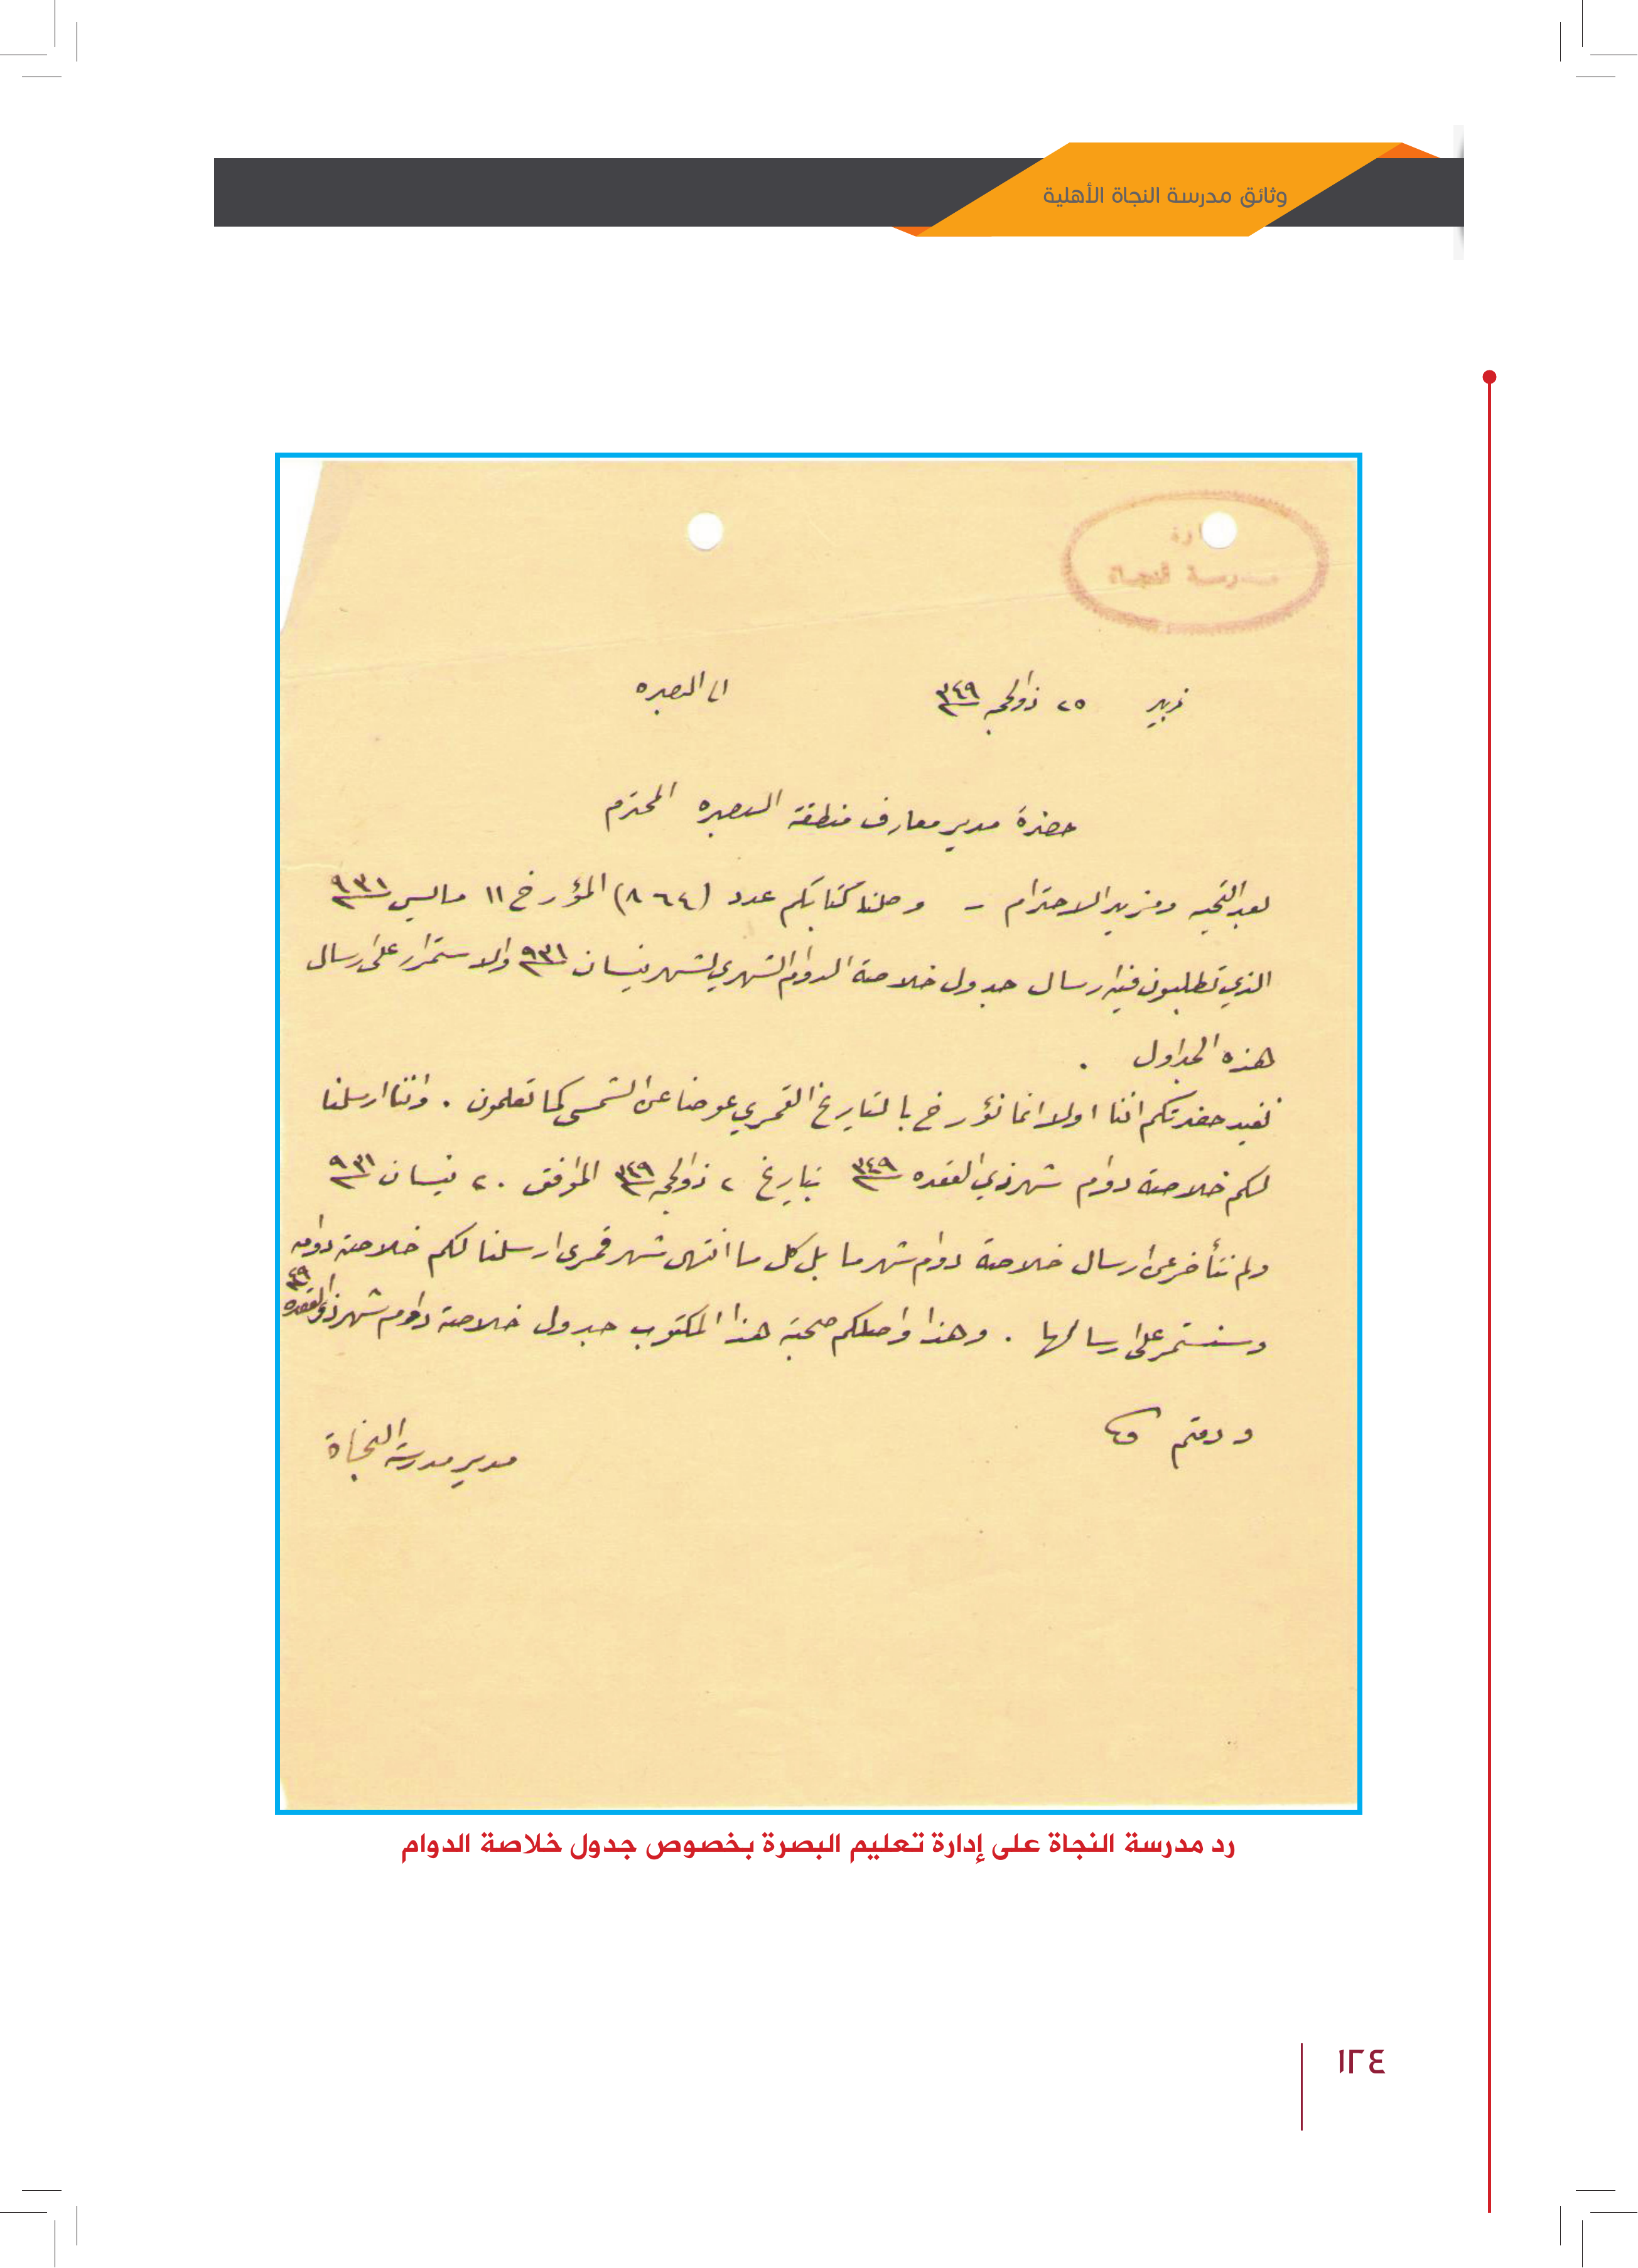 وثائق مدرسة النجاة الأهلية
ارة
مدرسة النجاة
زبير ٢٥ ذوالحجه ٣٤٩ الى البصره
حضرة مدير معارف منطقة البصره المحترم
بعد التحيه ومزيد الاحترام – وصلنا كتابكم عدد (٨٦٤) المؤرخ ١١ مايس ٩٣١
الذي تطلبون فيه ارسال جدول خلاصة الدوام الشهري لشهر نيسان ٩٣١ والاستمرار على ارسال
هذه الجداول .
نفيد حضرتكم اننا اولا انما نؤرخ بالتاريخ القمري عوضا عن الشمسي كما تعلمون . واننا ارسلنا
لكم خلاصة دوام شهر ذي القعده ٣٤٩ بتاريخ ٢ ذوالحجه ٣٤٩ الموافق ٢٠ نيسان ٩٣١
ولم نتأخر عن ارسال خلاصة دوام شهر ما بل كل ما انتهى شهر قمرى ارسلنا لكم خلاصة دوامه
وسنستمر على ارسالها . وهذا واصلكم صحبة هذا المكتوب جدول خلاصة دوام شهر ذوالقعده ٤٩
ودمتم
مدير مدرسة النجاة
رد مدرسة النجاة على إدارة تعليم البصرة بخصوص جدول خلاصة الدوام
١٢٤